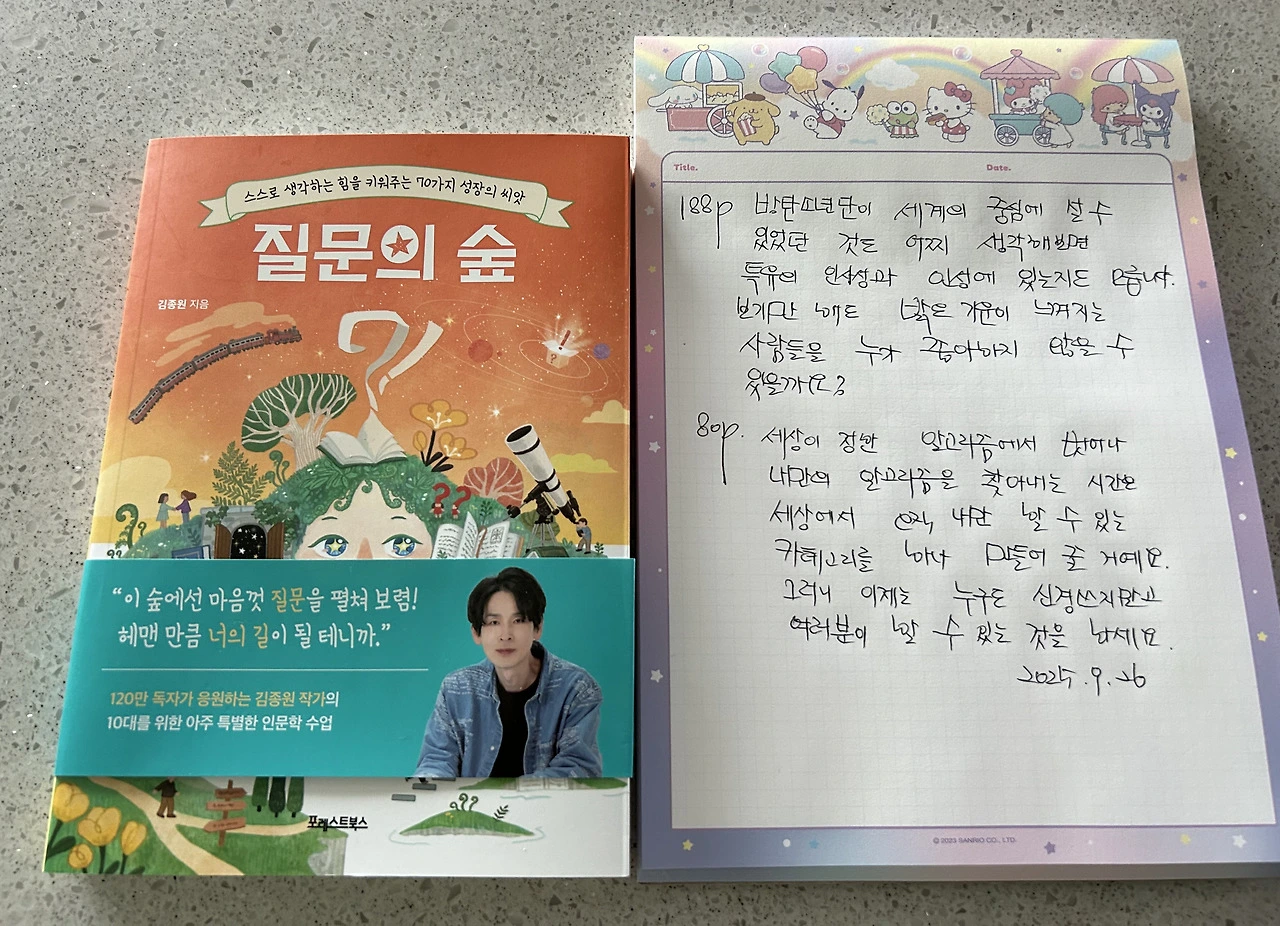 스스로 생각하는 힘을 키워주는 70가지 성장의 씨앗
질문의 숲
김종원 지음
“이 숲에선 마음껏 질문을 펼쳐 보렴!
헤맨 만큼 너의 길이 될 테니까.”
120만 독자가 응원하는 김종원 작가의
10대를 위한 아주 특별한 인문학 수업
포레스트북스
Title.
Date.
188p 방탄소년단이 세계의 중심에 설 수
있었던 것도 어찌 생각해보면
특유의 인사성과 인성에 있는지도 모릅니다.
보기만 해도 밝은 기운이 느껴지는
사람들을 누가 좋아하지 않을 수
있을까요?
80p. 세상이 정한 알고리즘에서 벗어나
나만의 알고리즘을 찾아내는 시간은
세상에서 오직 나만 할 수 있는
카테고리를 하나 만들어 줄 거예요.
그러니 이제는 누구도 신경쓰지말고
여러분이 할 수 있는 것을 하세요.
2025. 9. 26
© 2023 SANRIO CO., LTD.